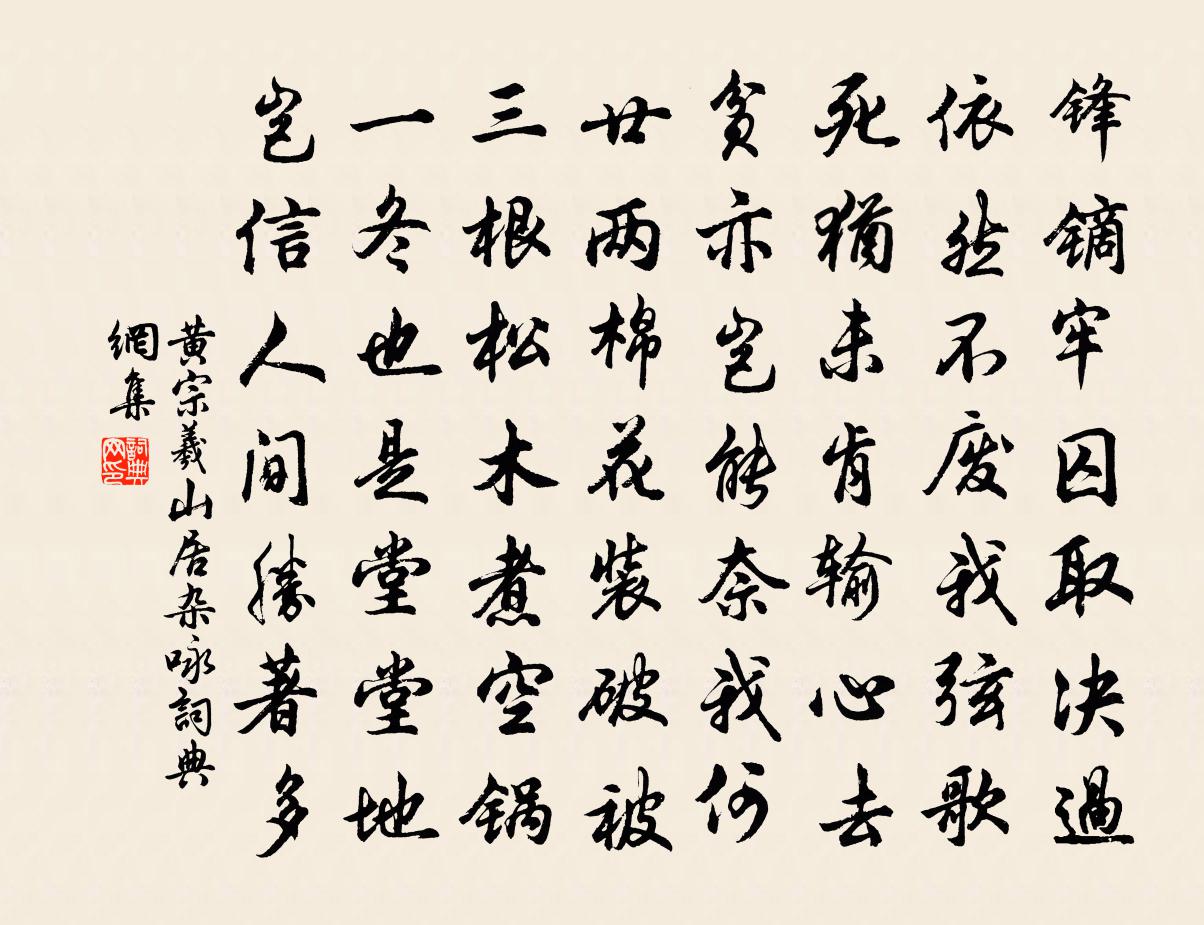 锋镝牢囚取决過
依然不废我弦歌
死猶未肯输心去
貧亦岂能奈我何
廿两棉花装破被
三根松木煮空锅
一冬也是堂堂地
岂信人间勝著多
黄宗羲山居杂咏詞典
網集
詞典
网印